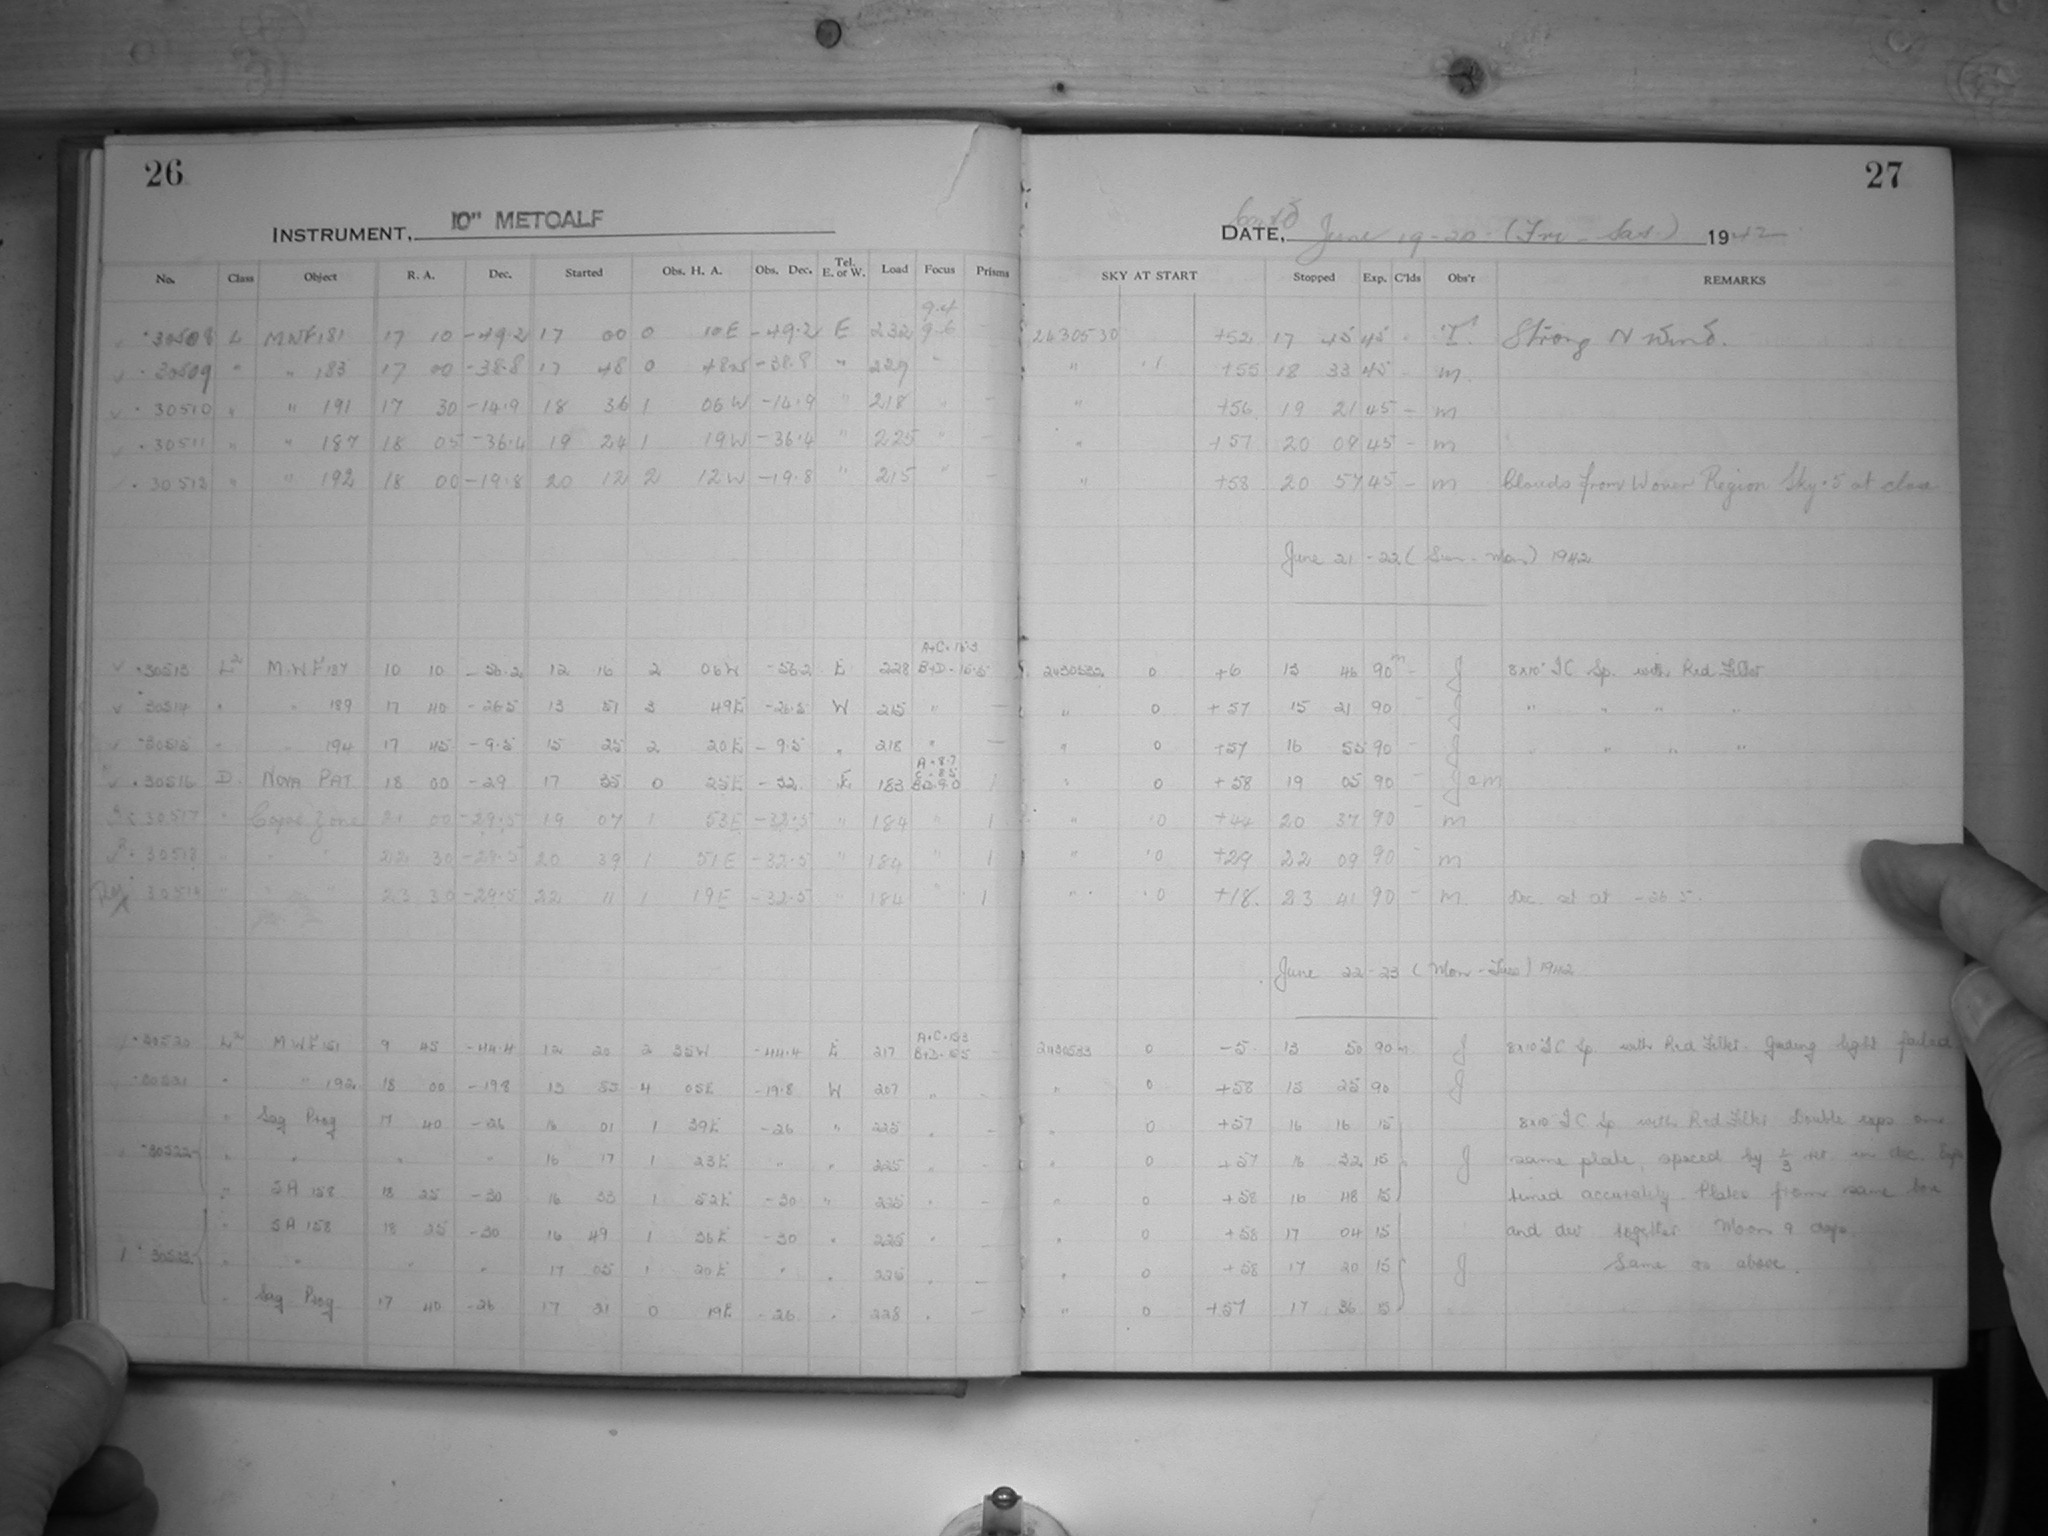 26
27
INSTRUMENT, 10" METCALF
DATE, June 19-20 (Fri - Sat.) 1942
No. Class Object R. A. Dec. Started Obs. H. A. Obs. Dec. Tel. E. or W. Load Focus Prisms SKY AT START Stopped Exp. C'lds Obs'r REMARKS
9.4
30508 L MWF 181 17 10 -49.2 17 00 0 10E -49.2 E 232 9.6 - 2430530 +52 17 45 45 - Strong N Wind.
30509 " " 183 17 00 -38.8 17 48 0 48W -38.8 " 229 " " +55 18 33 45 - m
30510 " " 191 17 30 -14.9 18 36 1 06W -14.9 " 218 " - " +56 19 21 45 - m
30511 " " 187 18 05 -36.4 19 24 1 19W -36.4 " 225 " - " +57 20 09 45 - m
30512 " " 192 18 00 -19.8 20 12 2 12W -19.8 " 215 " - " +58 20 57 45 - m Clouds from Region Sky .5 at close
June 21-22 (Sun - Mon) 1942
30513 L2 MWF 10 10 12 16 2 06W E 228 2430532 0 +6 13 46 90m - J 8x10 IC Sp. with Red Filter
30514 " " 189 17 40 -26.5 13 51 3 49E -26.5 W 215 " - " 0 +57 15 21 90 - " " " "
30515 " " 194 17 45 -9.5 15 25 2 20E -9.5 " 218 " - " 0 +57 16 55 90 - " " " "
30516 D NOVA PAT 18 00 -29 17 35 0 25E -32 E 183 1 " 0 +58 19 05 90 - J & m
30517 " Cape Zone 21 00 -29.5 19 07 1 53E -32.5 " 184 " 1 " 0 +44 20 37 90 - m
30518 " " " 22 30 -29.5 20 39 1 51E -32.5 " 184 " 1 " 0 +29 22 09 90 - m
30519 " " " 23 30 -29.5 22 11 1 19E -32.5 " 184 " 1 " 0 +18 23 41 90 - m Dec. set at -26.5.
June 22-23 (Mon - Tues) 1942
30520 L2 MWF 151 9 45 -44.4 12 20 2 35W -44.4 E 217 - 2430533 0 -5 13 50 90m J 8x10 IC Sp. with Red Filter. Guiding light failed
30521 " " 192 18 00 -19.8 13 55 4 05E -19.8 W 207 " - " 0 +58 15 25 90
" Sag Prog 17 40 -26 16 01 1 39E -26 " 225 " - " 0 +57 16 16 15 8x10 IC Sp. with Red Filter Double exps on
30522 " " " " 16 17 1 23E " " 225 " - " 0 +57 16 32 15 J same plate, spaced by in dec.
" SA 158 18 25 -30 16 33 1 52E -30 " 225 " - " 0 +58 16 48 15 timed accurately. Plates from same box
" SA 158 18 25 -30 16 49 1 36E -30 " 225 " - " 0 +58 17 04 15 and dev together Moon 9 days
30523 " " " " 17 05 1 20E " " 226 " - " 0 +58 17 20 15 J Same as above.
" Sag Prog 17 40 -26 17 21 0 19E -26 " 228 " - " 0 +57 17 36 15